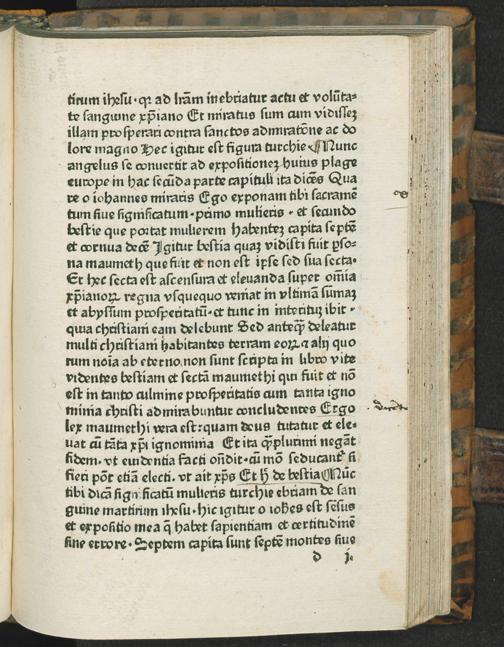 tirum ihesu · qꝛ ad lr̄am inebriatur actu et volūta⸗
te sanguine xp̄iano Et miratus sum cum vidissez
illam prosperari contra sanctos admiratōne ac do
lore magno Hec igitur est figura turchie ¶Nunc
angelus se conuertit ad expositionez huius plage
europe in hac secūda parte capituli ita dicēs Qua
re o iohannes miraris Ego exponam tibi sacramē
tum siue significatum · primo mulieris · et secundo
bestie que portat mulierem habentez capita septē
et cornua decē Igitur bestia quaz vidisti fuit p̱so⸗
na maumeth que fuit et non est ip̱se sed sua secta ·
Et hec secta est ascensura et eleuanda super om̄ia
xp̄ianoꝝ regna vsquequo veniat in vltimā sūmaz
et abyssum prosperitatū · et tunc in interitū ibit ·
quia christiani eam delebunt Sed anteq̄ᷓ deleatur
multi christiani habitantes terram eoꝝ ꝛ alij quo
rum noīa ab eterno non sunt scripta in libro vite
videntes bestiam et sectā maumethi qui fuit et nō
est in tanto culmine prosperitatis cum tanta igno
minia christi admirabuntur concludentes Ergo
lex maumethi vera est : quam deus tutatur et ele⸗
uat cū tāta xp̄i ignominia Et ita q̱plurimi negāt
fidem · vt euidentia facti on̄dit · cū mō seducant᷑ si
fieri pōt etiā electi · vt ait xp̄s Et h̄ de bestia ¶Nūc
tibi dicā significatū mulieris turchie ebriam de san
guine martirum ihesu · hic igitur o ioh̄es est sēsus
et expositio mea q̄ habet sapientiam et certitudinē
sine errore · Septem capita sunt septē montes siue
d j.